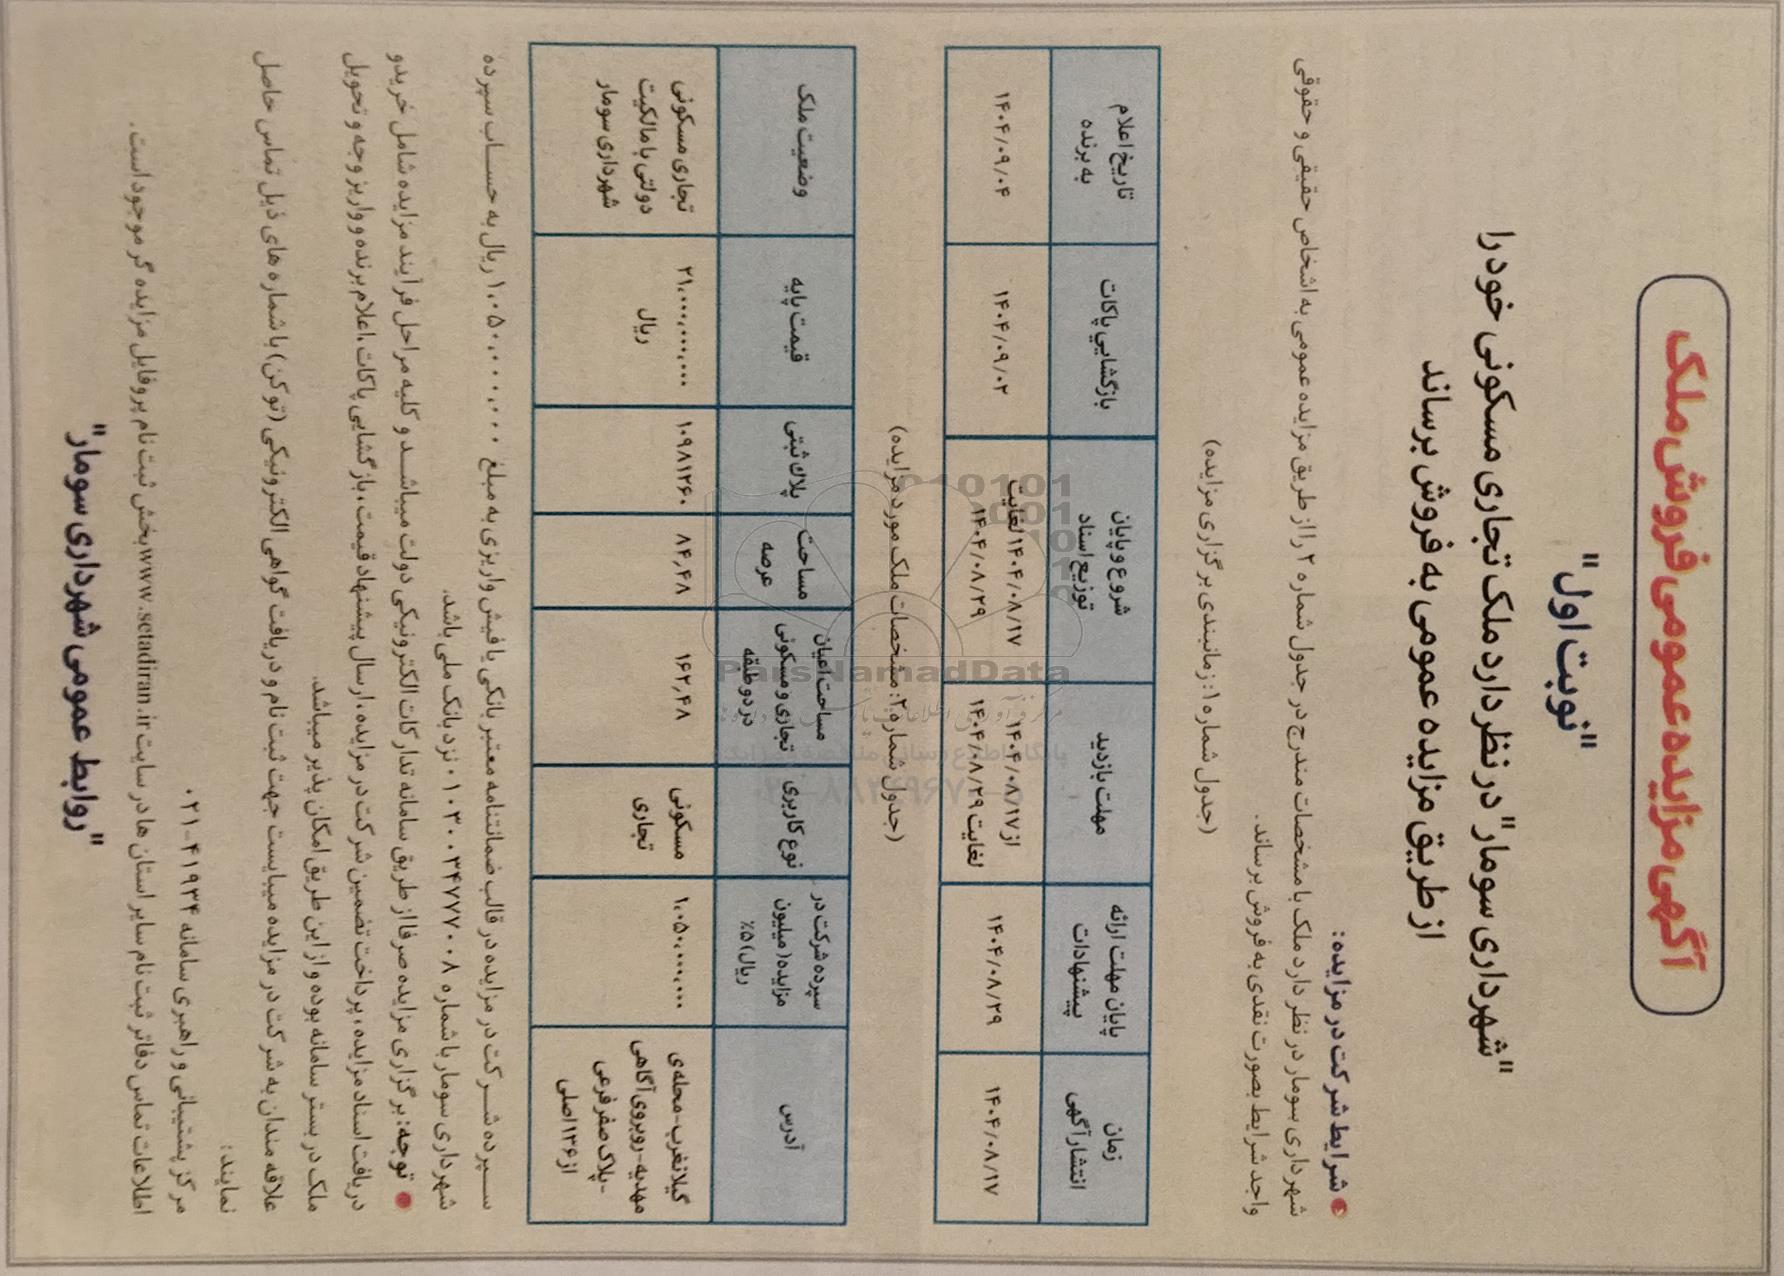 آگهی مزایده عمومی فروش ملک
"نوبت اول"
"شهرداری سومار" در نظر دارد ملک تجاری مسکونی خود را
از طریق مزایده عمومی به فروش برساند
شرایط شرکت در مزایده:
شهرداری سومار در نظر دارد ملک با مشخصات مندرج در جدول شماره ۲ را از طریق مزایده عمومی به اشخاص حقیقی و حقوقی
واجد شرایط بصورت نقدی به فروش برساند.
(جدول شماره ۱: زمانبندی برگزاری مزایده)
زمان انتشار آگهی | پایان مهلت ارائه پیشنهادات | مهلت بازدید | شروع و پایان توزیع اسناد | بازگشایی پاکات | تاریخ اعلام به برنده
۱۴۰۴/۰۸/۱۷ | ۱۴۰۴/۰۸/۲۹ | از ۱۴۰۴/۰۸/۱۷ لغایت ۱۴۰۴/۰۸/۲۹ | ۱۴۰۴/۰۸/۱۷ لغایت ۱۴۰۴/۰۸/۲۹ | ۱۴۰۴/۰۹/۰۲ | ۱۴۰۴/۰۹/۰۴
(جدول شماره ۲: مشخصات ملک مورد مزایده)
آدرس | سپرده شرکت در مزایده (میلیون ریال) ۵٪ | نوع کاربری | مساحت اعیان تجاری و مسکونی در دو طبقه | مساحت عرصه | پلاک ثبتی | قیمت پایه | وضعیت ملک
گیلانغرب-محله‌ی مهدیه-روبروی آگاهی -پلاک صفر فرعی از ۱۳۶ اصلی | ۱،۰۵۰،۰۰۰،۰۰۰ | مسکونی تجاری | ۱۶۲,۴۸ | ۸۴,۴۸ | ۱۰۹۸۱۲۶۰ | ۲۱،۰۰۰،۰۰۰،۰۰۰ ریال | تجاری مسکونی دولتی با مالکیت شهرداری سومار
سپرده شرکت در مزایده در قالب ضمانتنامه معتبر بانکی یا فیش واریزی به مبلغ ۱،۰۵۰،۰۰۰،۰۰۰ ریال به حساب سپرده
شهرداری سومار با شماره ۰۱۰۳۰۰۳۴۷۷۷۰۰۸ نزد بانک ملی باشد.
توجه: برگزاری مزایده صرفا از طریق سامانه تدارکات الکترونیکی دولت میباشد و کلیه مراحل فرآیند مزایده شامل خرید و
دریافت اسناد مزایده، پرداخت تضمین شرکت در مزایده، ارسال پیشنهاد قیمت، بازگشایی پاکات، اعلام برنده و واریز وجه و تحویل
ملک در بستر سامانه بوده و از این طریق امکان پذیر میباشد.
علاقه مندان به شرکت در مزایده میبایست جهت ثبت نام و دریافت گواهی الکترونیکی (توکن) با شماره های ذیل تماس حاصل
نمایند:
مرکز پشتیبانی و راهبری سامانه ۴۱۹۳۴-۰۲۱
اطلاعات تماس دفاتر ثبت نام سایر استان ها در سایت www.setadiran.ir بخش ثبت نام پروفایل مزایده گر موجود است.
"روابط عمومی شهرداری سومار"
ParsNamadData